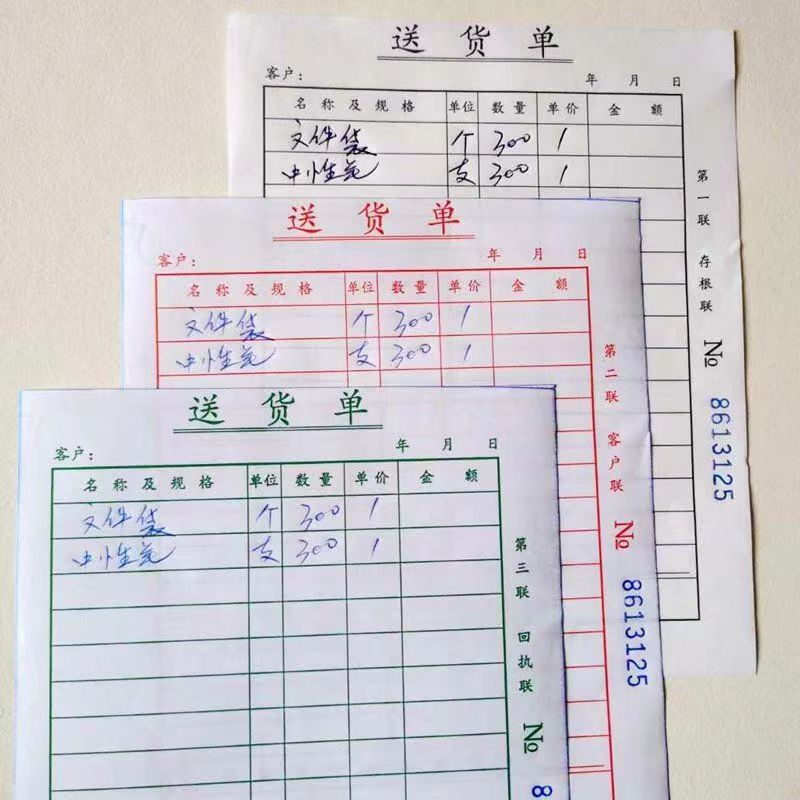 送货单
客户： 年 月 日
名称及规格 单位 数量 单价 金额
文件袋 个 300 1
中性笔 支 300 1
第一联 存根联 № 8613125
送货单
客户： 年 月 日
名称及规格 单位 数量 单价 金额
文件袋 个 300 1
中性笔 支 300 1
第二联 客户联 № 8613125
送货单
客户： 年 月 日
名称及规格 单位 数量 单价 金额
文件袋 个 300 1
中性笔 支 300 1
第三联 回执联 № 8